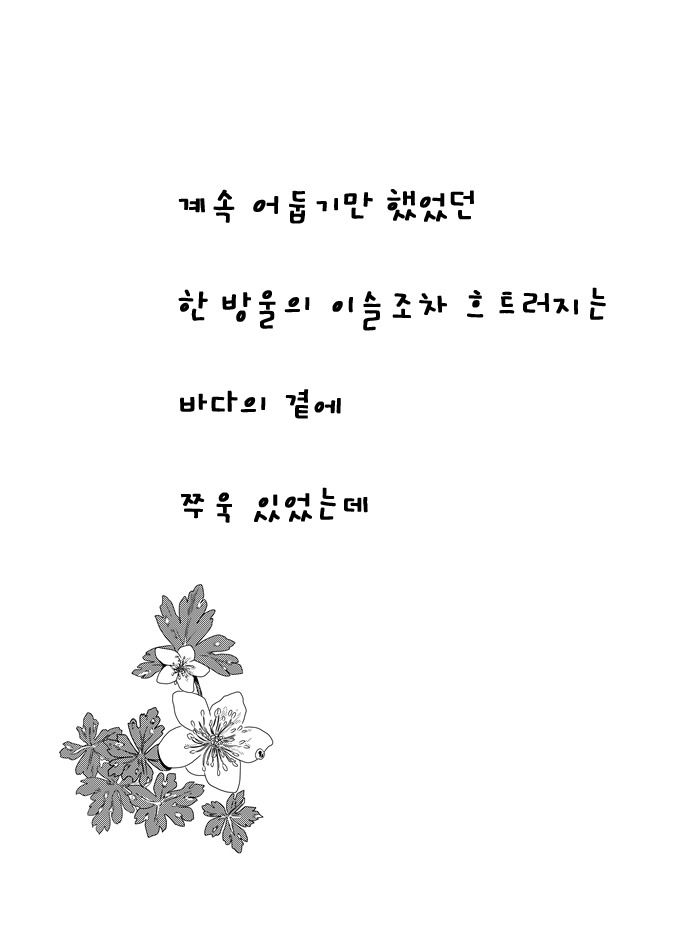 계속 어둡기만 했었던
한 방울의 이슬조차 흐트러지는
바다의 곁에
쭈욱 있었는데